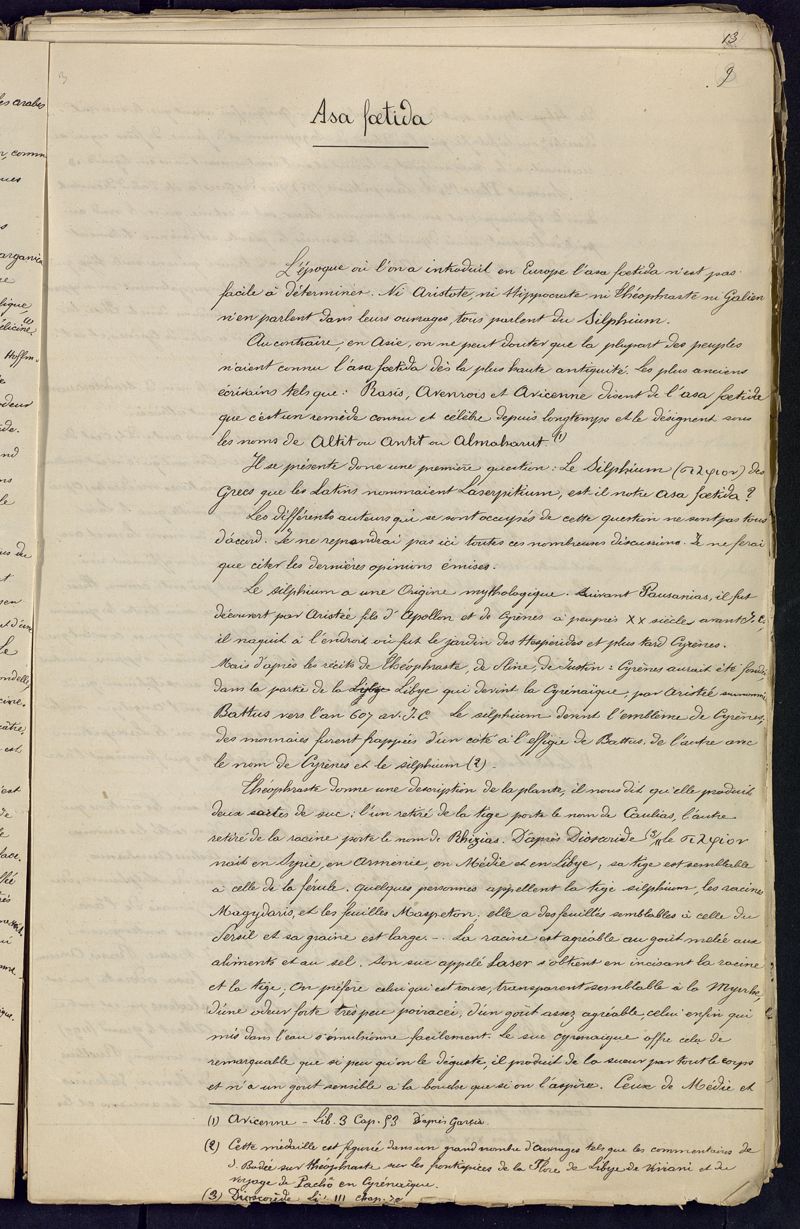 13
9
Asa fœtida
L'époque où l'on a introduit en Europe l'asa fœtida n'est pas
facile à déterminer. Ni Aristote, ni Hippocrate ni Théophraste ni Galien
n'en parlent dans leurs ouvrages, tous parlent du Silphium.
Au contraire, en Asie, on ne peut douter que la plupart des peuples
n'aient connu l'asa fœtida dès la plus haute antiquité. Les plus anciens
écrivains tels que : Rasis, Avenrois et Avicenne disent de l'asa fœtida
que c'est un remède connu et célèbre depuis longtemps et le désignent sous
les noms de Altit ou Antit ou Almaharut (1)
Il se présente donc une première question : Le Silphium (σιλφιον) des
Grecs que les Latins nommaient Laserpitium, est-il notre asa fœtida ?
Les différents auteurs qui se sont occupés de cette question ne sont pas tous
d'accord. Je ne reprendrai pas ici toutes ces nombreuses discussions. Je ne ferai
que citer les dernières opinions émises.
Le silphium a une Origine mythologique. Suivant Pausanias, il fut
découvert par Aristée fils d'Apollon et de Cyrènes à peu près XX siècles avant J.C,
il naquit à l'endroit où fut le jardin des Hespérides et plus tard Cyrènes.
Mais d'après les récits de Théophraste, de Pline, de Justin : Cyrènes aurait été fondé
dans la partie de la Libye qui devint la Cyrénaïque, par Aristée surnommé
Battus vers l'an 607 av. J.C. Le silphium devint l'emblème de Cyrènes,
des monnaies furent frappées d'un côté à l'effigie de Battus, de l'autre avec
le nom de Cyrènes et le silphium (2).
Théophraste donne une description de la plante, il nous dit qu'elle produit
deux sortes de suc : l'un retiré de la tige porte le nom de Caulias, l'autre
retiré de la racine porte le nom de Rhizias. D'après Dioscoride (3), le σιλφιον
nait en Syrie, en Arménie, en Médie et en Libye ; sa tige est semblable
à celle de la férule. Quelques personnes appellent la tige silphium, les racines
Magydaris, et les feuilles Maspeton. elle a des feuilles semblables à celle du
Persil et sa graine est large... La racine est agréable au goût mêlée aux
aliments et au sel. Son suc appelé Laser s'obtient en incisant la racine
et la tige ; On préfère celui qui est roux, transparent semblable à la Myrrhe,
d'une odeur forte très peu poiracée, d'un goût assez agréable, celui enfin qui
mis dans l'eau s'émulsionne facilement. Le suc cyrénaïque offre cela de
remarquable que si peu qu'on le déguste, il produit de la sueur par tout le corps
et n'a un goût sensible à la bouche que si on l'aspire. Ceux de Médie et
(1) Avicenne - Lib. 3 Cap. 53 D'après Garcia.
(2) Cette médaille est figurée dans un grand nombre d'ouvrages tels que les commentaires de
J. Bodée sur Théophraste sur les frontispices de la Flore de Libye de Viviani et du
voyage de Pachô en Cyrénaïque.
(3) Dioscoride Li. III chap.